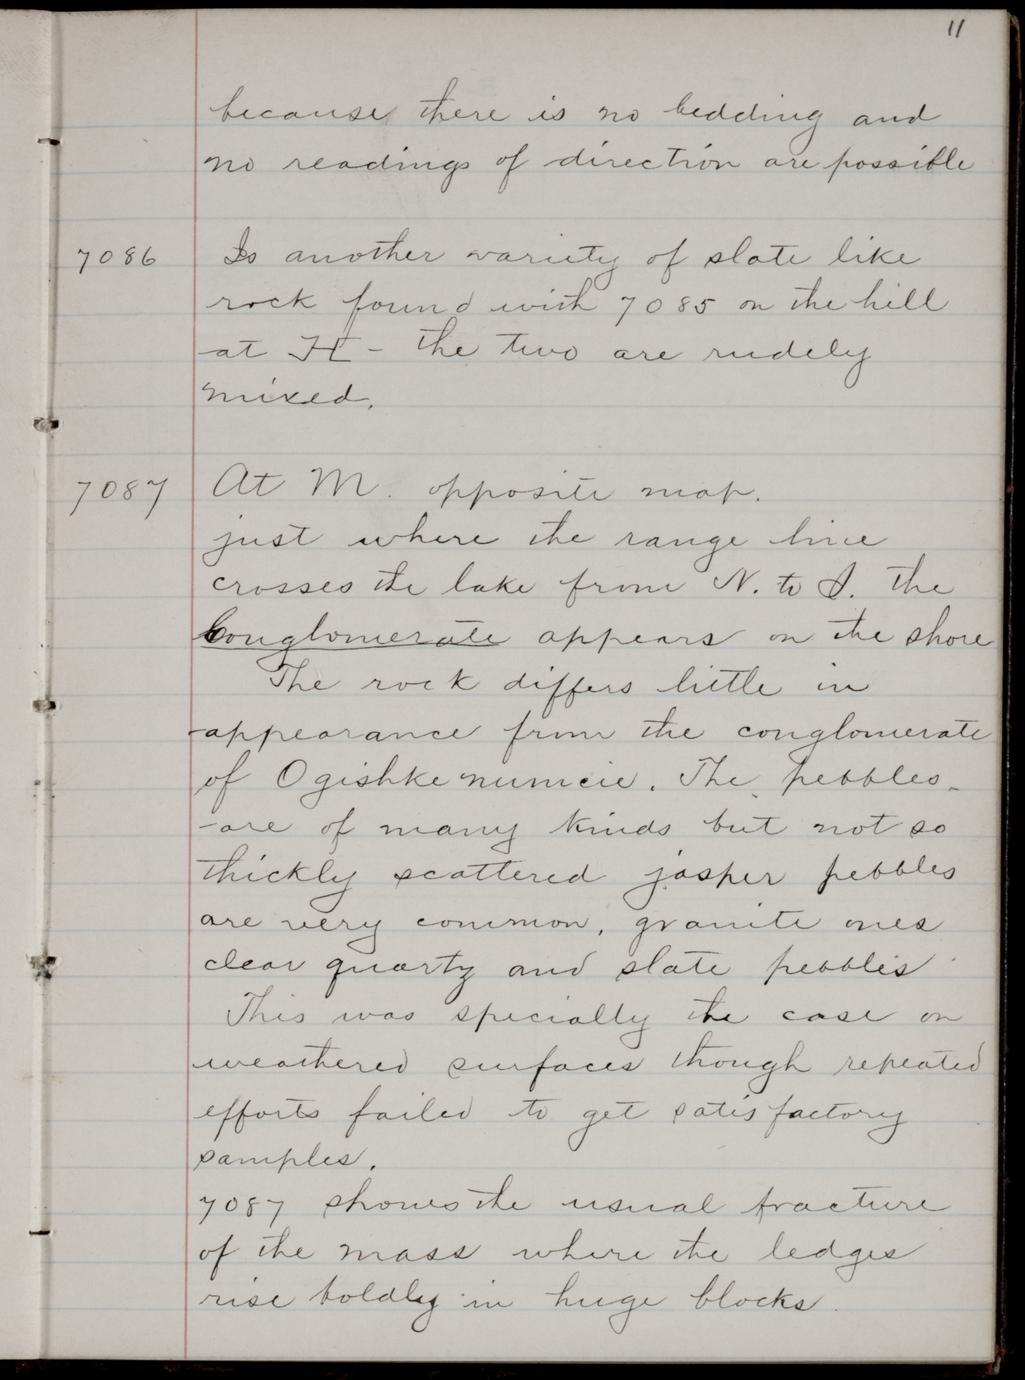 11
because there is no bedding and
no readings of direction are possible
7086 Is another variety of slate like
rock found with 7085 on the hill
at H - the two are rudely
mixed.
7087 At M. opposite map.
just where the range line
crosses the lake from N. to S. the
Conglomerate appears on the shore
The rock differs little in
appearance from the conglomerate
of Ogishke numcie. The pebbles
are of many kinds but not so
thickly scattered jasper pebbles
are very common, granite ones
clear quartz and slate pebbles
This was specially the case on
weathered surfaces though repeated
efforts failed to get satisfactory
samples.
7087 shows the usual fracture
of the mass where the ledges
rise boldly in huge blocks.